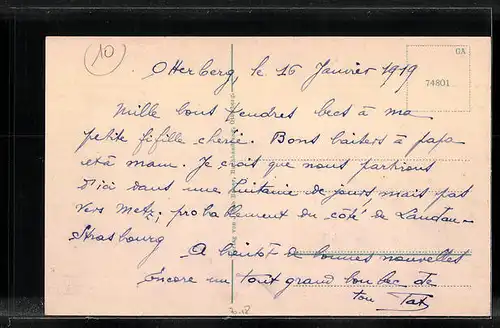 10
Otterberg, le 16 Janvier 1919
GA
74801
Mille bons tendres becs à ma
petite fifille cherie. Bons baisers à papa
et à mam. Je crois que nous partirons
d'ici dans une huitaine de jours, mais pas
vers Metz; probablement du côté de Landau-
Strasbourg
A bientôt de bonnes nouvelles
Encore un tout grand bon bec de
ton Tat